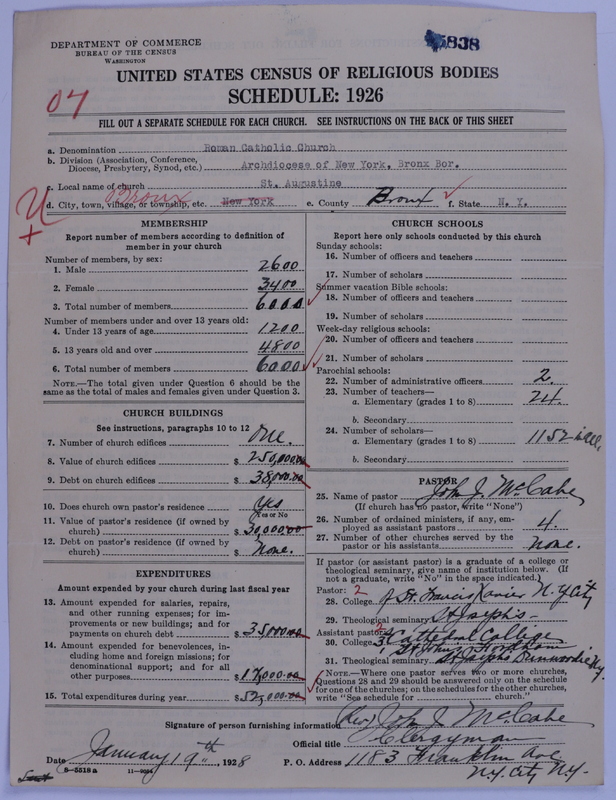 5838
DEPARTMENT OF COMMERCE
BUREAU OF THE CENSUS
WASHINGTON
UNITED STATES CENSUS OF RELIGIOUS BODIES
SCHEDULE: 1926
07
FILL OUT A SEPARATE SCHEDULE FOR EACH CHURCH. SEE INSTRUCTIONS ON THE BACK OF THIS SHEET
a. Denomination Roman Catholic Church
b. Division (Association, Conference, Diocese, Presbytery, Synod, etc.) Archdiocese of New York, Bronx Bor.
c. Local name of church St. Augustine
d. City, town, village, or township, etc. Bronx New York e. County Bronx f. State N. Y.
MEMBERSHIP
Report number of members according to definition of member in your church
Number of members, by sex:
1. Male 2600
2. Female 3400
3. Total number of members 6000
Number of members under and over 13 years old:
4. Under 13 years of age 1200
5. 13 years old and over 4800
6. Total number of members 6000
NOTE.—The total given under Question 6 should be the same as the total of males and females given under Question 3.
CHURCH BUILDINGS
See instructions, paragraphs 10 to 12
7. Number of church edifices One.
8. Value of church edifices $ 250,000.00
9. Debt on church edifices $ 38,000.00
10. Does church own pastor's residence Yes
Yes or No
11. Value of pastor's residence (if owned by church) $ 30,000.00
12. Debt on pastor's residence (if owned by church) $ None.
EXPENDITURES
Amount expended by your church during last fiscal year
13. Amount expended for salaries, repairs, and other running expenses; for improvements or new building; and for payments on church debt $ 35,000.00
14. Amount expended for benevolences, including home and foreign missions; for denominational support; and for all other purposes $ 17,000.00
15. Total expenditures during year $ 52,000.00
CHURCH SCHOOLS
Report here only schools conducted by this church
Sunday schools:
16. Number of officers and teachers
17. Number of scholars
Summer vacation Bible schools:
18. Number of officers and teachers
19. Number of scholars
Week-day religious schools:
20. Number of officers and teachers
21. Number of scholars
Parochial schools:
22. Number of administrative officers 2.
23. Number of teachers—
a. Elementary (grades 1 to 8) 24.
b. Secondary
24. Number of scholars—
a. Elementary (grades 1 to 8) 1152 in all
b. Secondary
PASTOR
25. Name of pastor John J. McCabe
(If church has no pastor, write "None")
26. Number of ordained ministers, if any, employed as assistant pastors 4.
27. Number of other churches served by the pastor or his assistants none.
If pastor (or assistant pastor) is a graduate of a college or theological seminary, give name of institution below. (If not a graduate, write "No" in the space indicated.)
Pastor: 2
28. College St. Francis Xavier N.Y. City
29. Theological seminary St Joseph's
Assistant pastor: 2
30. College Cathedral College
Fordham
31. Theological seminary St Josephs Dunwoodie N.Y.
NOTE.—Where one pastor serves two or more churches, Questions 28 and 29 should be answered only on the schedule for one of the churches; on the schedules for the other churches, write "See schedule for church."
Signature of person furnishing information (Rev) John J. McCabe
Official title Clergyman
Date January 19th, 1928 P. O. Address 1183 Franklin Ave
N.Y. City N.Y.
8—5518a 11—9024